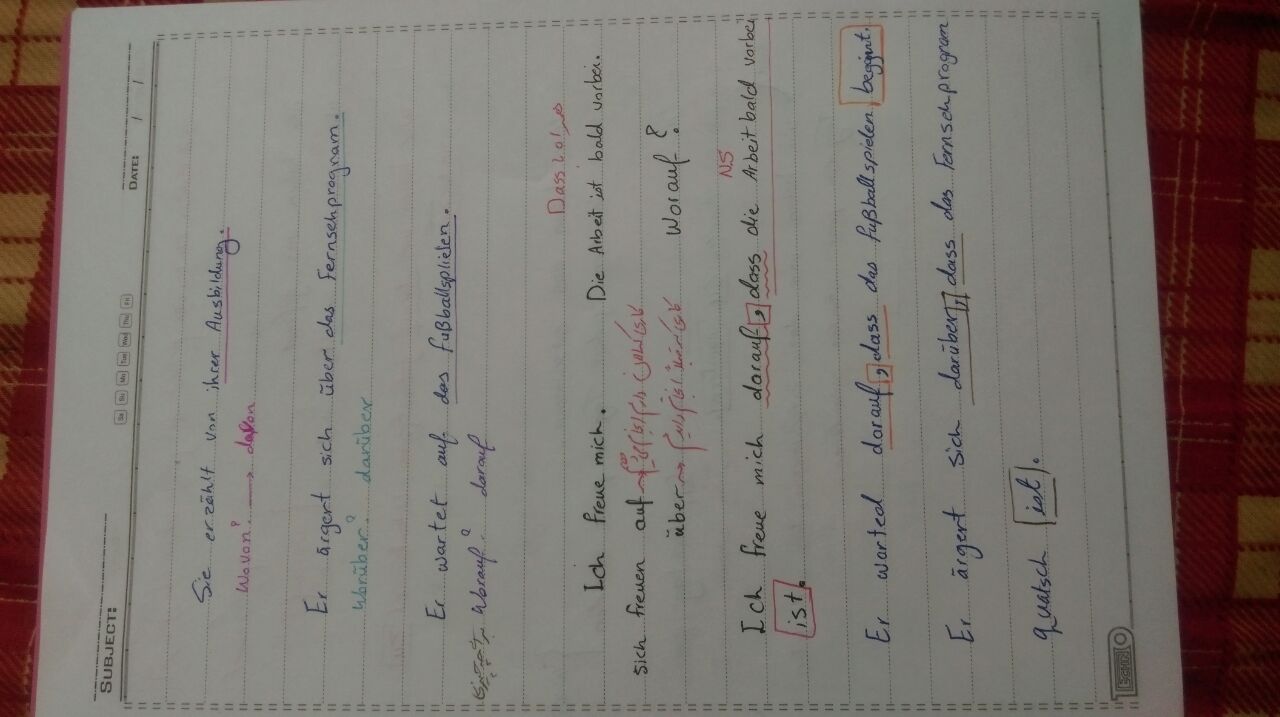 SUBJECT:
DATE: / /
Sa Su Mo Tue Wed Thu Fri
Sie erzählt von ihrer Ausbildung.
Wovon? → davon
Er ärgert sich über das Fernsehprogram.
Worüber? darüber
Er wartet auf das fußballsplielen.
Worauf? darauf
Dass
Ich freue mich. Die Arbeit ist bald vorbei.
sich freuen auf →
über → Worauf?
NS
Ich freue mich darauf, dass die Arbeit bald vorbei
ist.
Er warted darauf, dass das fußballspielen beginnt.
Er ärgert sich darüber, dass das Fernsehprogram
quatsch ist.